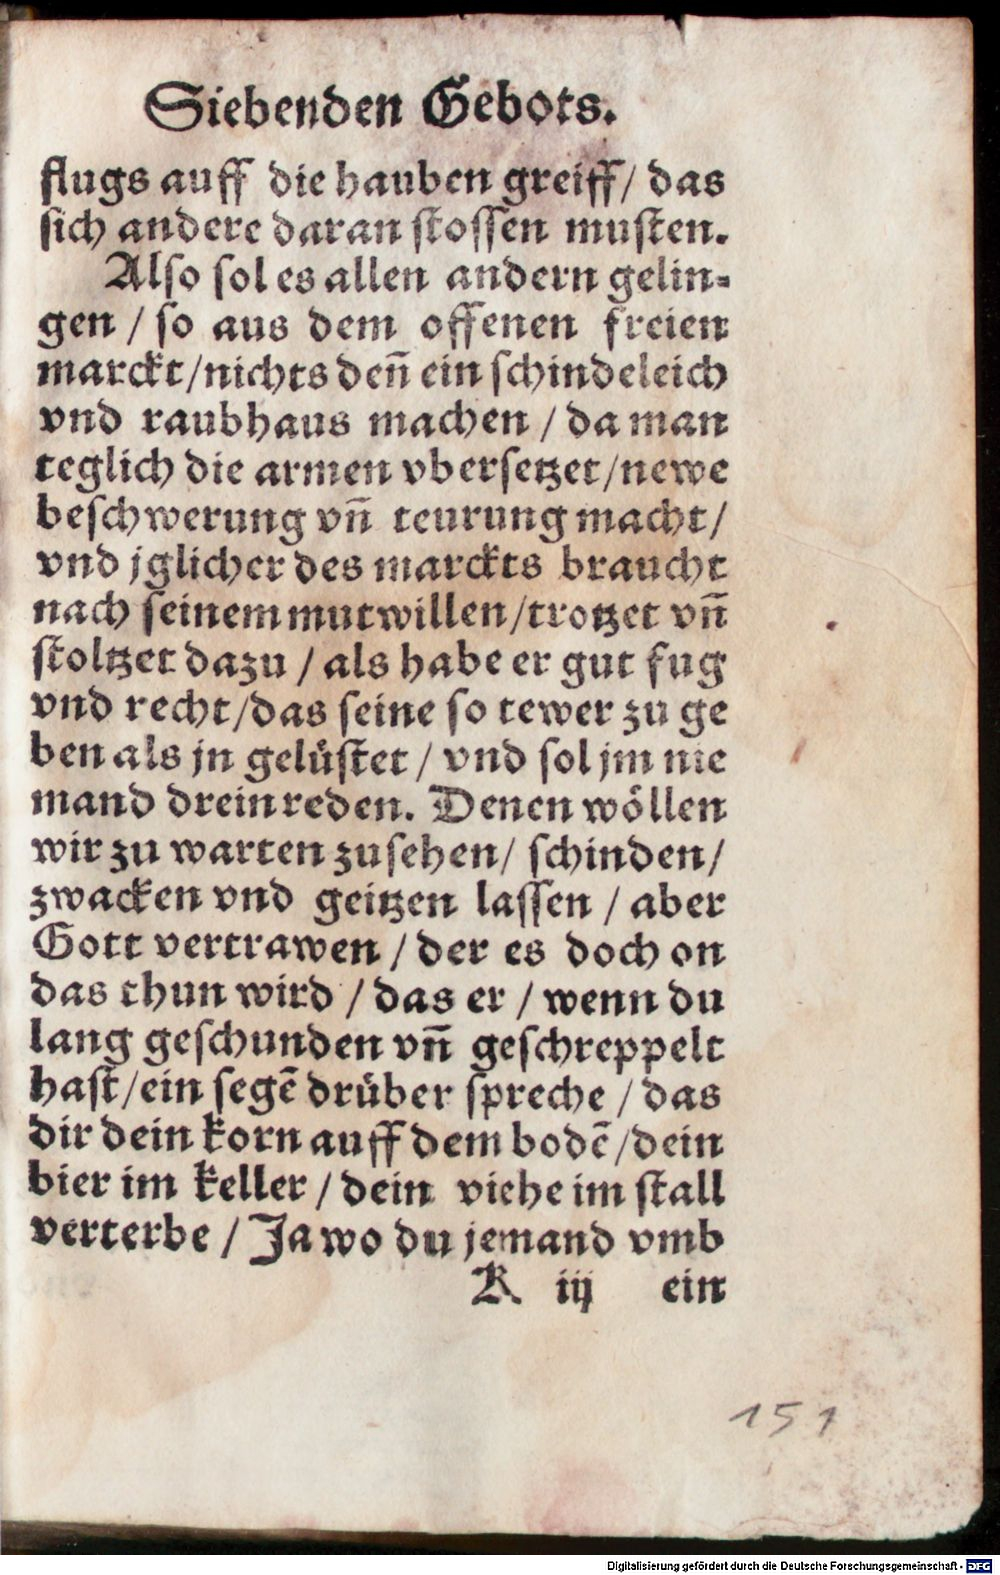 Siebenden Gebots.
flugs auff die hauben greiff/ das
sich andere daran stossen musten.
Also sol es allen andern gelin⸗
gen / so aus dem offenen freien
marckt/nichts deñ ein schindeleich
vnd raubhaus machen / da man
teglich die armen vbersetzet/newe
beschwerung vñ teurung macht/
vnd jglicher des marckts braucht
nach seinem mutwillen/trotzet vñ
stoltzet dazu / als habe er gut fug
vnd recht/das seine so tewer zu ge
ben als jn gelüstet / vnd sol jm nie
mand drein reden. Denen wöllen
wir zu warten zusehen/ schinden/
zwacken vnd geitzen lassen / aber
Gott vertrawen / der es doch on
das thun wird / das er / wenn du
lang geschunden vñ geschreppelt
hast/ein segē drüber spreche / das
dir dein korn auff dem bodē/dein
bier im keller / dein viehe im stall
verterbe / Ja wo du jemand vmb
K iij ein
151
Digitalisierung gefördert durch die Deutsche Forschungsgemeinschaft - DFG